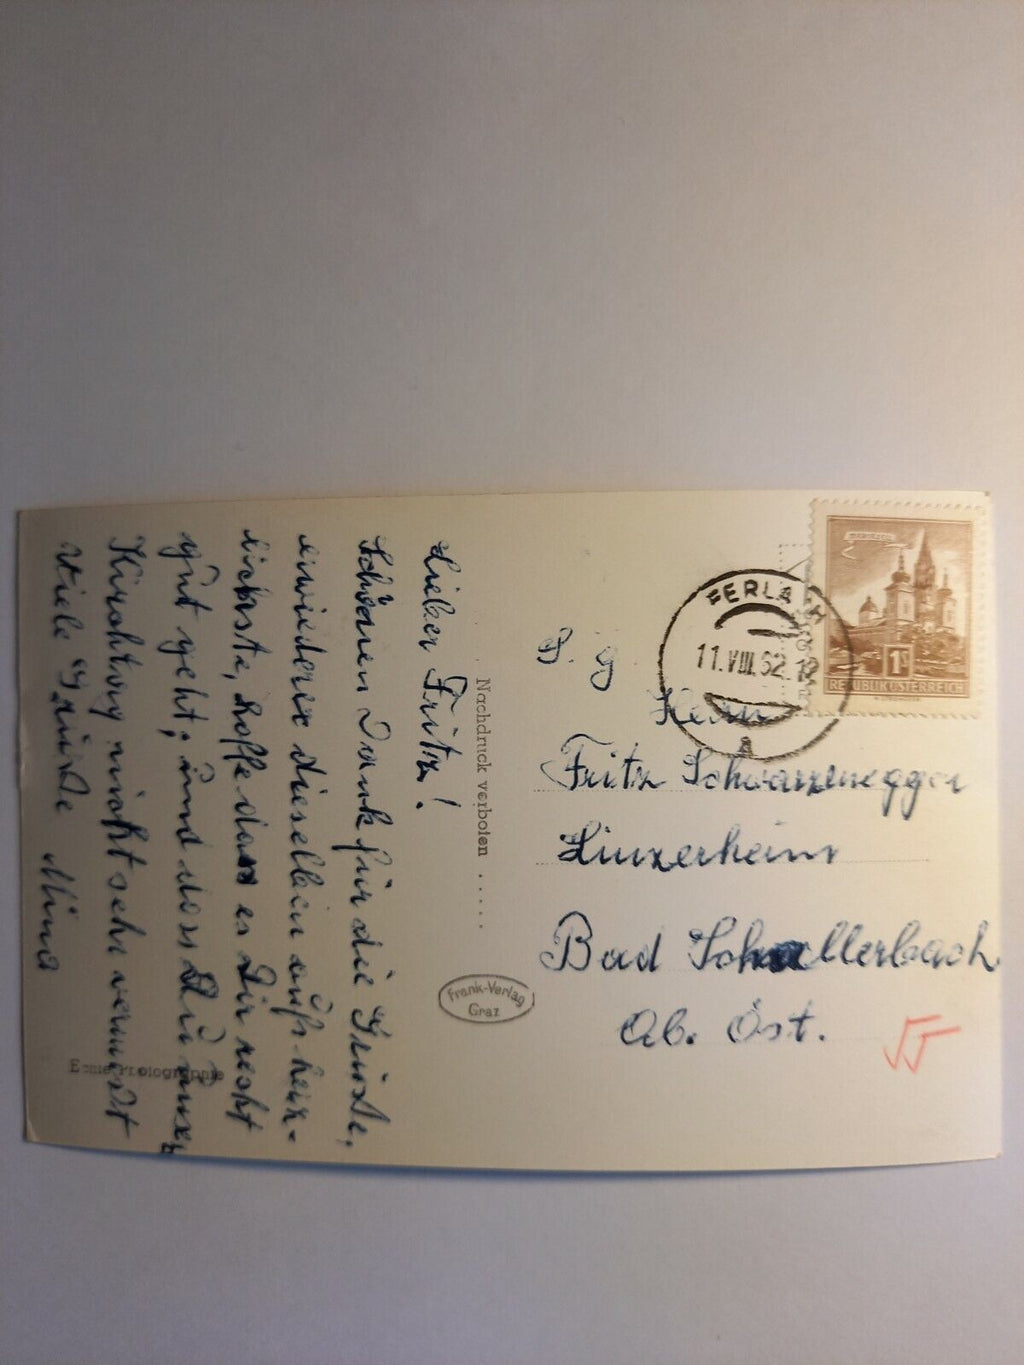 Lieber Fritz!
Schönen Dank für die Grüsse,
erwiedere dieselben aufs herz-
lichste, hoffe dass es Dir recht
gut geht; und dass Du unser
Kirchtag nicht sehr vermisst
Viele Grüsse Mina
Echte Photographie
Nachdruck verboten .....
Frank-Verlag
Graz
MARIAZELL
1S
REPUBLIK ÖSTERREICH
FERLACH
11.VIII.62.12
a
Herrn
Fritz Schwarzenegger
Linzerheim
Bad Schallerbach
Ob. Öst.